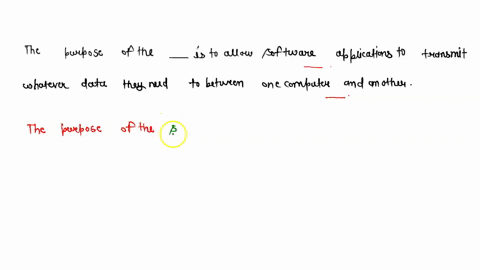 The purpose of the ___ is to allow software applications to transmit
whatever data they need to between one computer and another.
The purpose of the